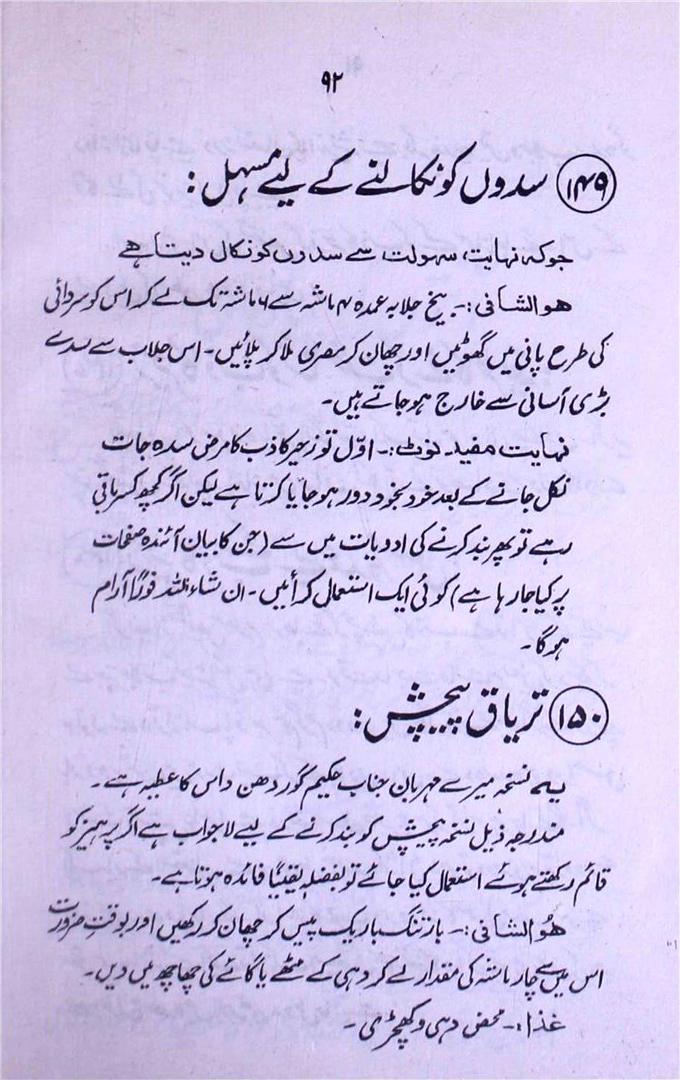 ۹۲
۱۴۹ سدوں کو نکالنے کے لیے مسہل:
جو کہ نہایت، سہولت سے سدوں کو نکال دیتا ہے
ھوالشافی:۔ بیخ جلابہ عمدہ ۴ ماشہ سے ۶ ماشہ تک لے کر اس کو سردائی
کی طرح پانی میں گھوٹیں اور چھان کر مصری ملا کر پلائیں۔ اس جلاب سے سدے
بڑی آسانی سے خارج ہو جاتے ہیں۔
نہایت مفید۔ نوٹ:۔ اوّل تو زحیر کاذب کا مرض سدہ جات
نکل جانے کے بعد خود بخود دور ہو جایا کرتا ہے لیکن اگر کچھ کسر باقی
رہے تو پھر بند کرنے کی ادویات میں سے (جن کا بیان آئندہ صفحات
پر کیا جا رہا ہے) کوئی ایک استعمال کرائیں۔ ان شاء اللہ فوراً آرام
ہو گا۔
۱۵۰ تریاق پیچش:
یہ نسخہ میرے مہربان جناب حکیم گوردھن داس کا عطیہ ہے۔
مندرجہ ذیل نسخہ پیچش کو بند کرنے کے لیے لاجواب ہے اگر پرہیز کو
قائم رکھتے ہوئے استعمال کیا جائے تو بفضلہ یقیناً فائدہ ہوتا ہے۔
ھُوالشافی:۔ بارتنگ باریک پیس کر چھان کر رکھیں اور بوقتِ ضرورت
اس میں سے چار ماشہ کی مقدار لے کر دہی کے مٹھے یا گائے کی چھاچھ میں دیں۔
غذا:۔ محض دہی و کھچڑی۔